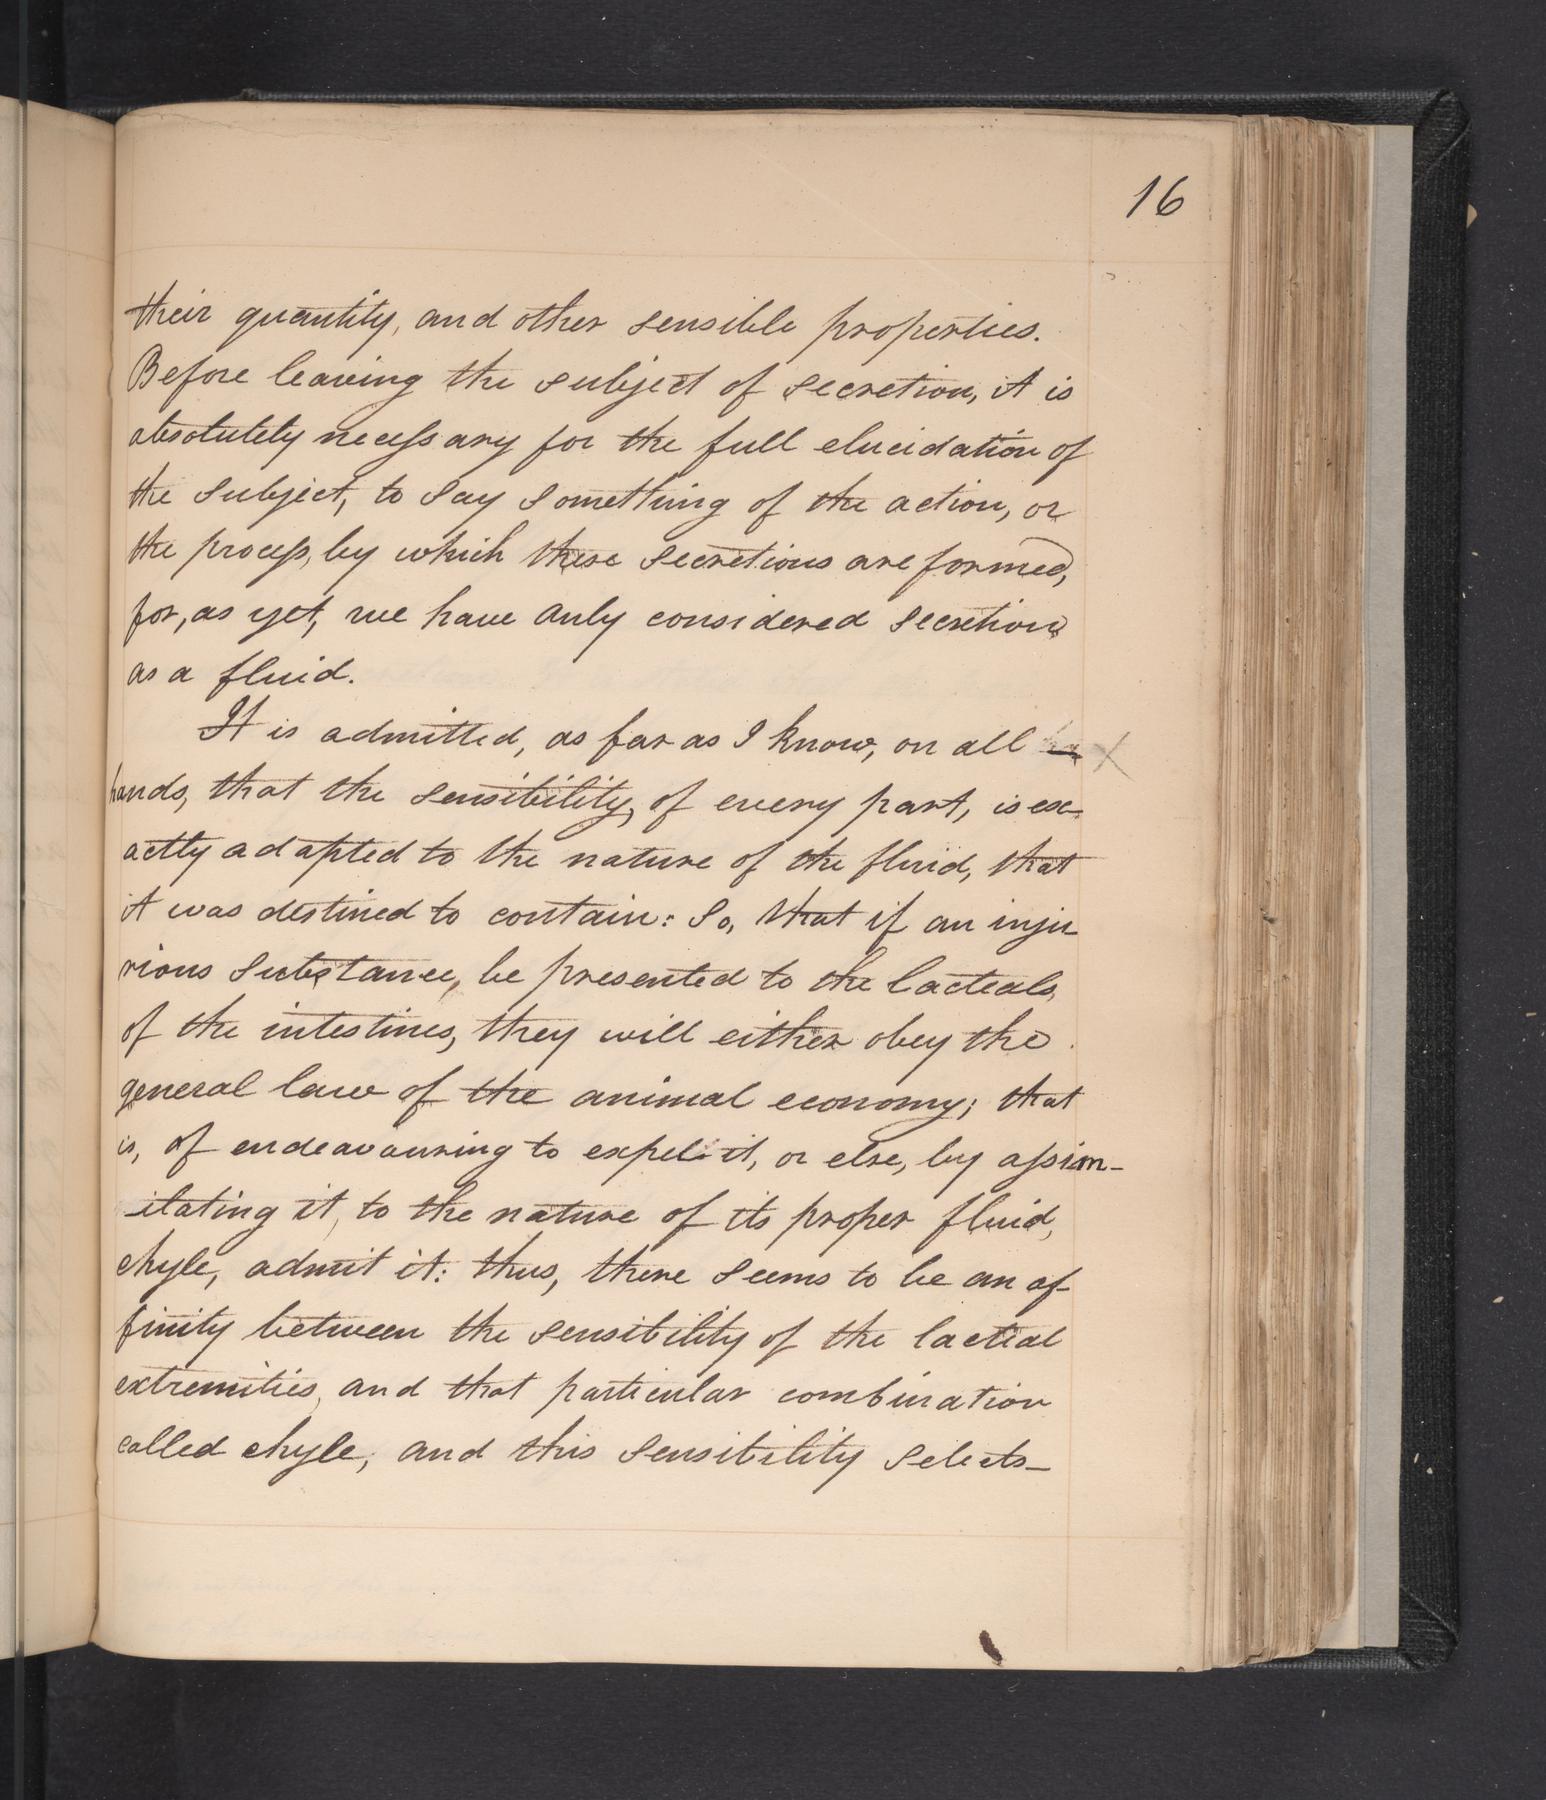 16
their quantity, and other sensible properties.
Before leaving the subject of secretion, it is
absolutely necessary for the full elucidation of
the subject, to say something of the action, or
the process, by which these secretions are formed,
for, as yet, we have only considered secretion
as a fluid.
It is admitted, as far as I know, on all ha
hands, that the sensibility, of every part, is ex-
actly adapted to the nature of the fluid, that
it was destined to contain: So, that if an inju-
rious substance, be presented to the lacteals,
of the intestines, they will either obey the
general law of the animal economy; that
is, of endeavouring to expel it, or else, by assim-
-ilating it, to the nature of its proper fluid,
chyle, admit it: thus, there seems to be an af-
finity between the sensibility of the lacteal
extremities, and that particular combination
called chyle, and this sensibility selects-